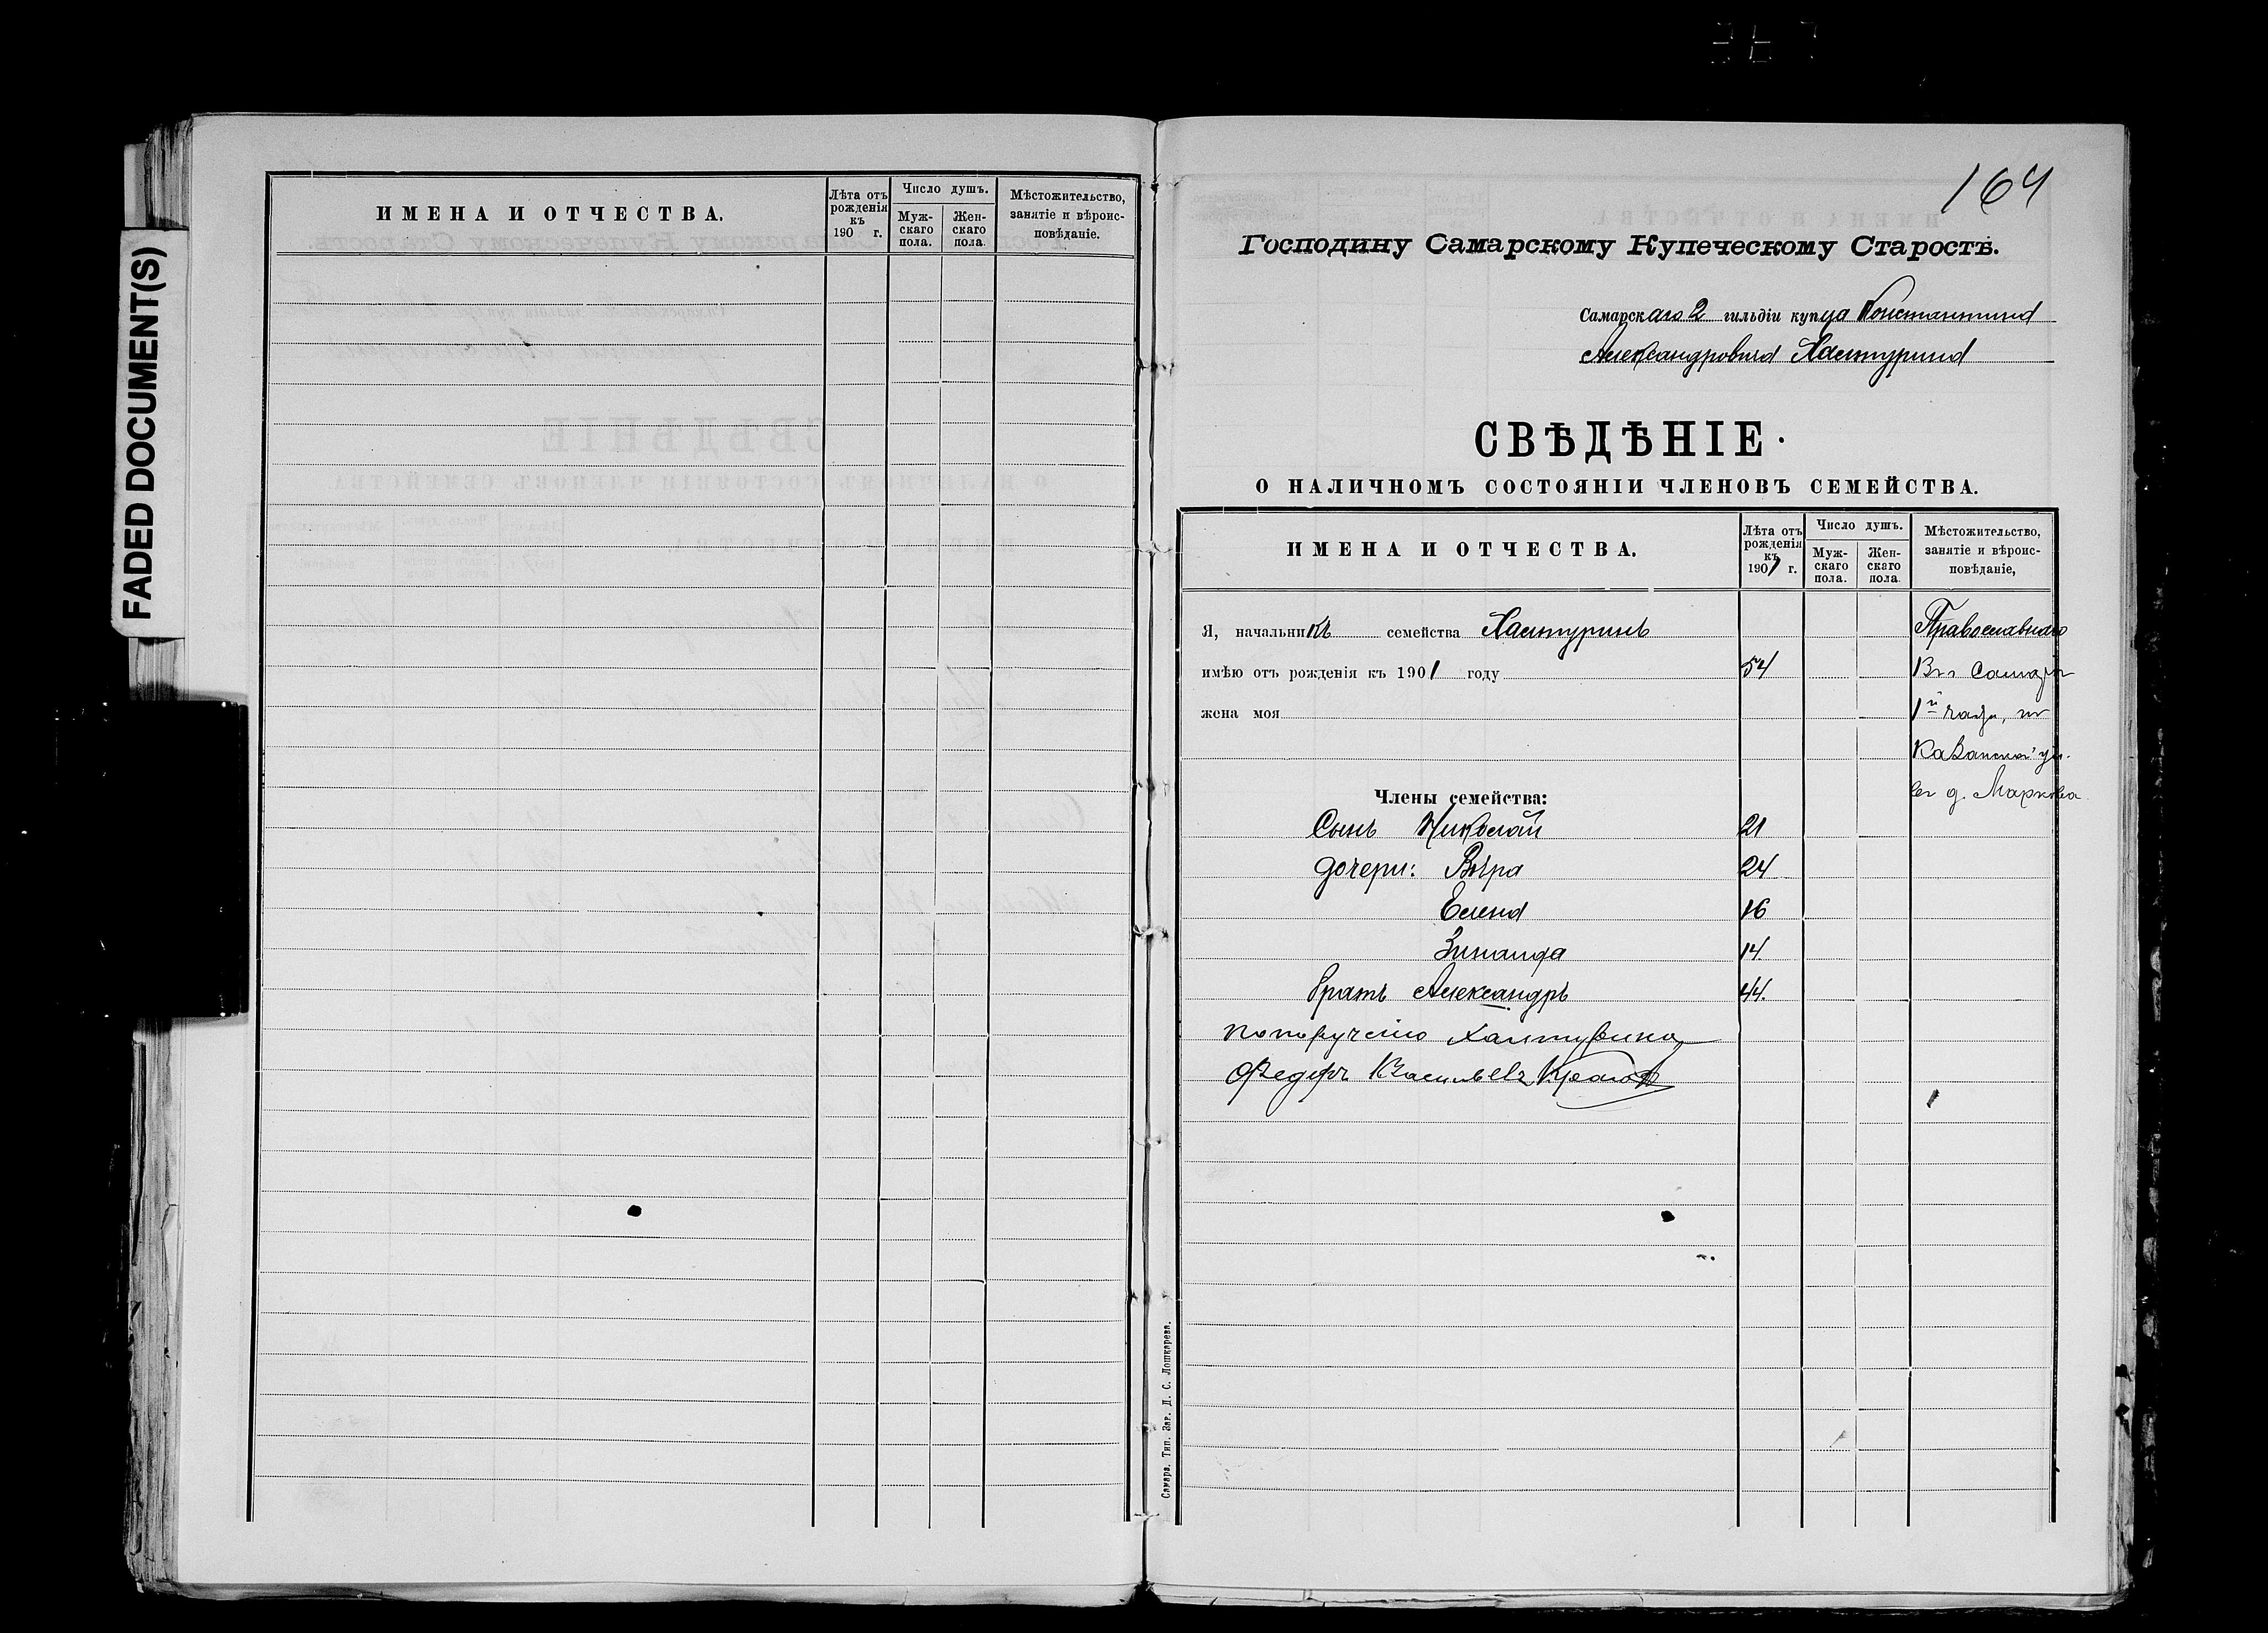 FADED DOCUMENT(S)
ИМЕНА И ОТЧЕСТВА.
Лѣта отъ рожденія къ 190 г.
Число душъ.
Мужскаго пола.
Женскаго пола.
Мѣстожительство, занятіе и вѣроисповѣданіе.
164
Господину Самарскому Купеческому Старостѣ.
Самарскаго 2 гильдіи купца Константина
Александровича Халтурина
СВѢДѢНІЕ
О НАЛИЧНОМЪ СОСТОЯНІИ ЧЛЕНОВЪ СЕМЕЙСТВА.
ИМЕНА И ОТЧЕСТВА.
Лѣта отъ
рожденія
къ
1901 г.
Число душъ.
Муж-
скаго
пола.
Жен-
скаго
пола.
Мѣстожительство,
занятіе и вѣроис-
повѣданіе,
Я, начальникъ семейства Халтуринъ Православнаго
имѣю отъ рожденія къ 1901 году 54 Въ Самарѣ
жена моя 1й части, по
Казанской ул.
въ д. Маркова
Члены семейства:
Сынъ Николай 21
дочери: Вѣра 24
Елена 16
Зинаида 14.
братъ Александръ 44.
по порученію Халтурина
Федоръ Васильевъ
Самара. Тип. Зав. Д. С. Лошкарева.